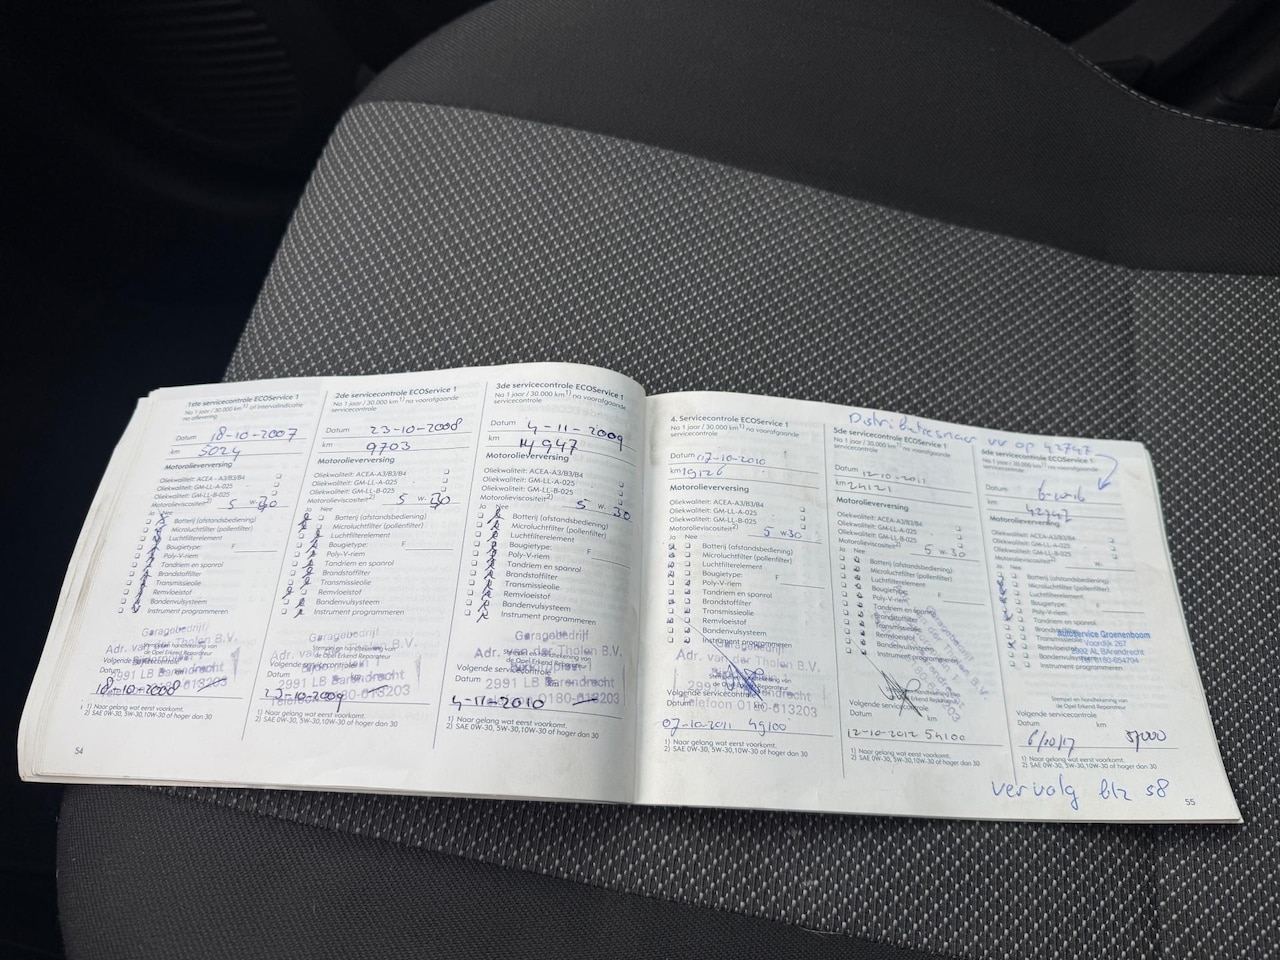 1ste servicecontrole ECOService 1
Na 1 jaar / 30.000 km 1) of intervalindicatie
na aflevering
Datum 18-10-2007
km 5024
Motorolieverversing
Oliekwaliteit: ACEA-A3/B3/B4
Oliekwaliteit: GM-LL-A-025
Oliekwaliteit: GM-LL-B-025
Motorolieviscositeit 2) 5 w 30
Ja Nee
Batterij (afstandsbediening)
Microluchtfilter (pollenfilter)
Luchtfilterelement
Bougietype: F
Poly-V-riem
Tandriem en spanrol
Brandstoffilter
Transmissieolie
Remvloeistof
Bandenvulsysteem
Instrument programmeren
Garagebedrijf
Adr. van der Tholen B.V.
2991 LB Barendrecht
Volgende
18-10-2008
1) Naar gelang wat eerst voorkomt.
2) SAE 0W-30, 5W-30,10W-30 of hoger dan 30
54
2de servicecontrole ECOService 1
Na 1 jaar / 30.000 km 1) na voorafgaande
servicecontrole
Datum 23-10-2008
km 9703
Motorolieverversing
Oliekwaliteit: ACEA-A3/B3/B4
Oliekwaliteit: GM-LL-A-025
Oliekwaliteit: GM-LL-B-025
Motorolieviscositeit 2) 5 w 30
Ja Nee
Batterij (afstandsbediening)
Microluchtfilter (pollenfilter)
Luchtfilterelement
Bougietype: F
Poly-V-riem
Tandriem en spanrol
Brandstoffilter
Transmissieolie
Remvloeistof
Bandenvulsysteem
Instrument programmeren
Garagebedrijf
Stempel en handtekening van
de Opel Erkend Reparateur
2991 LB Barendrecht
Datum
23-10-2009
1) Naar gelang wat eerst voorkomt.
2) SAE 0W-30, 5W-30,10W-30 of hoger dan 30
3de servicecontrole ECOService 1
Na 1 jaar / 30.000 km 1) na voorafgaande
servicecontrole
Datum 4-11-2009
km 14947
Motorolieverversing
Oliekwaliteit: ACEA-A3/B3/B4
Oliekwaliteit: GM-LL-A-025
Oliekwaliteit: GM-LL-B-025
Motorolieviscositeit 2) 5 w 30
Ja Nee
Batterij (afstandsbediening)
Microluchtfilter (pollenfilter)
Luchtfilterelement
Bougietype: F
Poly-V-riem
Tandriem en spanrol
Brandstoffilter
Transmissieolie
Remvloeistof
Bandenvulsysteem
Instrument programmeren
Garagebedrijf
Adr. van der Tholen B.V.
Volgende servicecontrole
2991 LB Barendrecht
Datum 0180-613203
4-11-2010
1) Naar gelang wat eerst voorkomt.
2) SAE 0W-30, 5W-30,10W-30 of hoger dan 30
4. Servicecontrole ECOService 1
Na 1 jaar / 30.000 km 1) na voorafgaande
servicecontrole
Datum 07-10-2010
km 19126
Motorolieverversing
Oliekwaliteit: ACEA-A3/B3/B4
Oliekwaliteit: GM-LL-A-025
Oliekwaliteit: GM-LL-B-025
Motorolieviscositeit 2) 5 w 30
Ja Nee
Batterij (afstandsbediening)
Microluchtfilter (pollenfilter)
Luchtfilterelement
Bougietype: F
Poly-V-riem
Tandriem en spanrol
Brandstoffilter
Transmissieolie
Remvloeistof
Bandenvulsysteem
Instrument programmeren
Garagebedrijf
Adr. van der Tholen B.V.
Volgende servicecontrole
Datum Telefoon 0180-613203
07-10-2011 49100
1) Naar gelang wat eerst voorkomt.
2) SAE 0W-30, 5W-30,10W-30 of hoger dan 30
Distributiesnaar vv op 42747
5de servicecontrole ECOService 1
Na 1 jaar / 30.000 km 1) na voorafgaande
servicecontrole
Datum 12-10-2011
km 24121
Motorolieverversing
Oliekwaliteit: ACEA-A3/B3/B4
Oliekwaliteit: GM-LL-A-025
Oliekwaliteit: GM-LL-B-025
Motorolieviscositeit 2) 5 w 30
Ja Nee
Batterij (afstandsbediening)
Microluchtfilter (pollenfilter)
Luchtfilterelement
Bougietype: F
Poly-V-riem
Tandriem en spanrol
Brandstoffilter
Transmissieolie
Remvloeistof
Bandenvulsysteem
Instrument programmeren
Volgende servicecontrole
Datum km
12-10-2012 54100
1) Naar gelang wat eerst voorkomt.
2) SAE 0W-30, 5W-30,10W-30 of hoger dan 30
6de servicecontrole ECOService 1
Na 1 jaar / 30.000 km 1) na voorafgaande
servicecontrole
Datum
km 42747
Motorolieverversing
Oliekwaliteit: ACEA-A3/B3/B4
Oliekwaliteit: GM-LL-A-025
Oliekwaliteit: GM-LL-B-025
Motorolieviscositeit 2) w
Ja Nee
Batterij (afstandsbediening)
Microluchtfilter (pollenfilter)
Luchtfilterelement
Bougietype: F
Poly-V-riem
Tandriem en spanrol
Brandstoffilter
Autoservice Groenenboom
Voordijk 267
2992 AL BArendrecht
Tel: 0180-654704
Bandenvulsysteem
Instrument programmeren
Stempel en handtekening van
de Opel Erkend Reparateur
Volgende servicecontrole
Datum km
6/10/17 57000
1) Naar gelang wat eerst voorkomt.
2) SAE 0W-30, 5W-30,10W-30 of hoger dan 30
vervolg blz 58
55